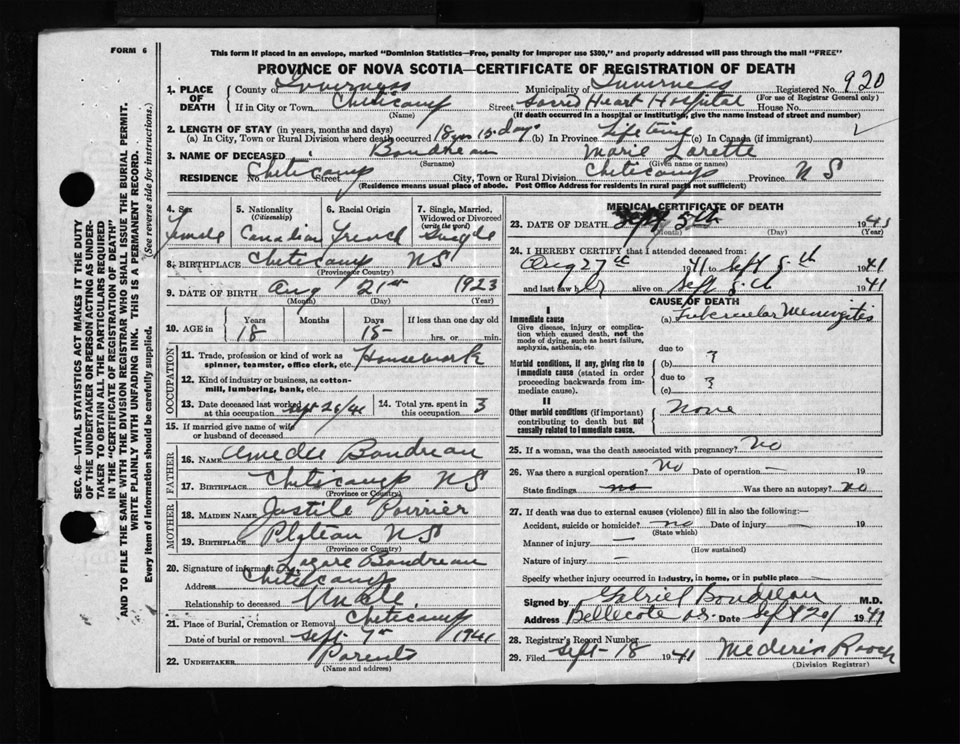 FORM 6
This form if placed in an envelope, marked "Dominion Statistics—Free, penalty for improper use $300," and properly addressed will pass through the mail "FREE"
PROVINCE OF NOVA SCOTIA—CERTIFICATE OF REGISTRATION OF DEATH
1. PLACE OF DEATH County of Inverness Municipality of Inverness Registered No. 920
(For use of Registrar General only)
If in City or Town Cheticamp Street Sacred Heart Hospital House No.
(Name) (If death occurred in a hospital or institution, give the name instead of street and number)
2. LENGTH OF STAY (in years, months and days)
(a) In City, Town or Rural Division where death occurred 18 yrs 15 days (b) in Province Lifetime (c) In Canada (if immigrant)
3. NAME OF DECEASED Boudreau Marie Lorette
(Surname) (Given name or names)
RESIDENCE No. Cheticamp Street City, Town or Rural Division Cheticamp Province N S
(Residence means usual place of abode. Post Office Address for residents in rural parts not sufficient)
4. Sex Female
5. Nationality (Citizenship) Canadian
6. Racial Origin French
7. Single, Married, Widowed or Divorced (write the word) Single
8. BIRTHPLACE Cheticamp NS
(Province or Country)
9. DATE OF BIRTH Aug 21st 1923
(Month) (Day) (Year)
10. AGE in Years 18 Months Days 15 If less than one day old
hrs. or min.
OCCUPATION
11. Trade, profession or kind of work as spinner, teamster, office clerk, etc. Housework
12. Kind of industry or business, as cotton-mill, lumbering, bank, etc.
13. Date deceased last worked at this occupation
14. Total yrs. spent in this occupation 3
15. If married give name of wife or husband of deceased
FATHER
16. NAME Amedee Boudreau
17. BIRTHPLACE Cheticamp NS
(Province or Country)
MOTHER
18. MAIDEN NAME Poirrier
19. BIRTHPLACE Plateau NS
(Province or Country)
20. Signature of informant Lazare Boudreau
Address Cheticamp
Relationship to deceased Uncle
21. Place of Burial, Cremation or Removal Cheticamp
Date of burial or removal Sept 7th 1941
22. UNDERTAKER Parents
MEDICAL CERTIFICATE OF DEATH
23. DATE OF DEATH Sept 5th 194
(Month) (Day) (Year)
24. I HEREBY CERTIFY that I attended deceased from:
Aug 27th 1941 to Sept 5th 1941
and last saw h alive on Sept 5th 1941
CAUSE OF DEATH
I
Immediate cause
Give disease, injury or complication which caused death, not the mode of dying, such as heart failure, asphyxia, asthenia, etc.
(a) Tubercular Meningitis
due to
Morbid conditions, if any, giving rise to immediate cause (stated in order proceeding backwards from immediate cause).
(b) ?
due to
(c) ?
II
Other morbid conditions (if important) contributing to death but not causally related to immediate cause.
None
25. If a woman, was the death associated with pregnancy? No
26. Was there a surgical operation? No Date of operation — 19
State findings no Was there an autopsy? no
27. If death was due to external causes (violence) fill in also the following:—
Accident, suicide or homicide? no Date of injury — 19
(State which)
Manner of injury —
(How sustained)
Nature of injury —
Specify whether injury occurred in industry, in home, or in public place
Signed by Gabriel Boudreau M.D.
Address Bellecote NS. Date 1941
28. Registrar's Record Number
29. Filed Sept 18 1941 Mederic
(Division Registrar)
SEC. 46—VITAL STATISTICS ACT MAKES IT THE DUTY
OF THE UNDERTAKER OR PERSON ACTING AS UNDERTAKER TO OBTAIN ALL THE PARTICULARS REQUIRED
IN THE "CERTIFICATE OF REGISTRATION OF DEATH"
AND TO FILE THE SAME WITH THE DIVISION REGISTRAR WHO SHALL ISSUE THE BURIAL PERMIT.
WRITE PLAINLY WITH UNFADING INK. THIS IS A PERMANENT RECORD.
Every item of information should be carefully supplied. (See reverse side for instructions.)